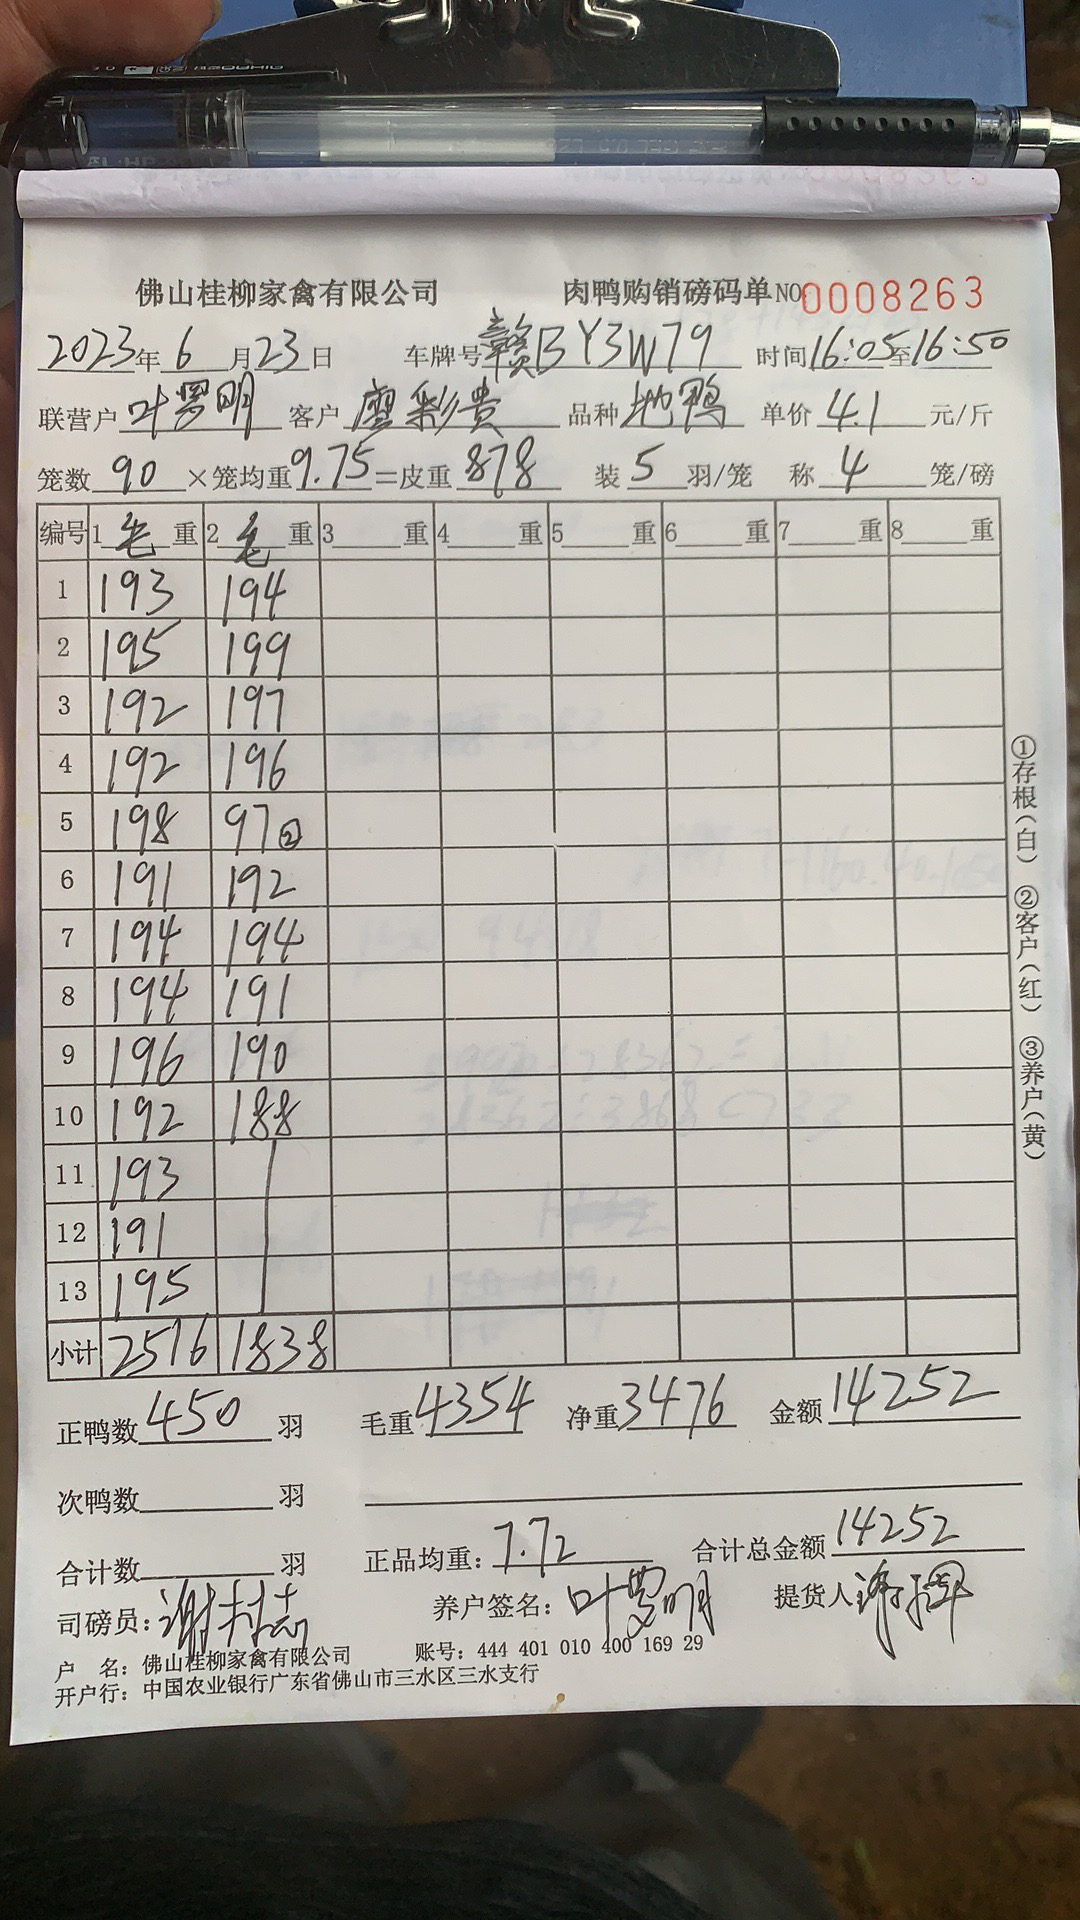 佛山桂柳家禽有限公司 肉鸭购销磅码单 NO 0008263
2023年6月23日 车牌号赣BY3W79 时间16:05至16:50
联营户叶罗明 客户廖彩贵 品种地鸭 单价4.1元/斤
笼数90×笼均重9.75=皮重878 装5羽/笼 称4笼/磅
编号 1毛重 2毛重 3重 4重 5重 6重 7重 8重
1 193 194
2 195 199
3 192 197
4 192 196
5 198 97②
6 191 192
7 194 194
8 194 191
9 196 190
10 192 188
11 193
12 191
13 195
小计 2516 1838
正鸭数450羽 毛重4354 净重3476 金额14252
次鸭数羽
合计数羽 正品均重:7.72 合计总金额14252
司磅员:谢志 养户签名:叶罗明 提货人
户 名:佛山桂柳家禽有限公司 账号:444 401 010 400 169 29
开户行:中国农业银行广东省佛山市三水区三水支行
①存根(白) ②客户(红) ③养户(黄)